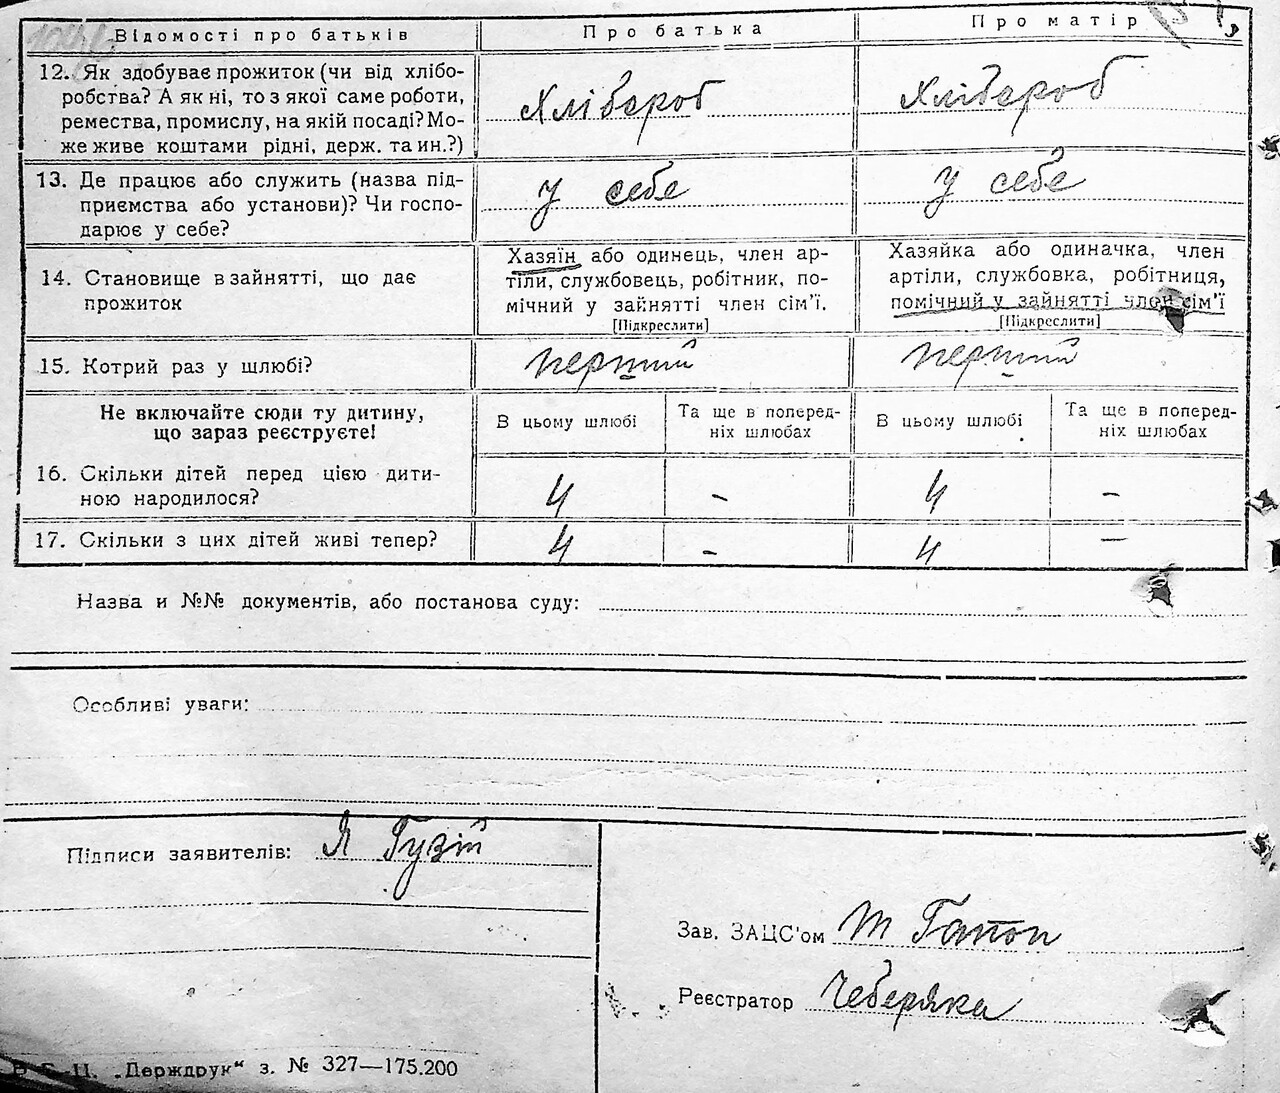 Відомості про батьків Про батька Про матір
12. Як здобуває прожиток (чи від хлібо-
робства? А як ні, то з якої саме роботи,
ремества, промислу, на якій посаді? Мо-
же живе коштами рідні, держ. та ин.?)
Хлібороб Хлібороб
13. Де працює або служить (назва під-
приємства або установи)? Чи госпо-
дарює у себе?
У себе У себе
14. Становище в зайнятті, що дає
прожиток
Хазяїн або одинець, член ар-
тіли, службовець, робітник, по-
мічний у зайнятті член сім'ї.
[Підкреслити]
Хазяйка або одиначка, член
артіли, службовка, робітниця,
помічний у зайнятті член сім'ї
[Підкреслити]
15. Котрий раз у шлюбі? перший перший
Не включайте сюди ту дитину,
що зараз реєструєте!
В цьому шлюбі
Та ще в поперед-
ніх шлюбах
В цьому шлюбі
Та ще в поперед-
ніх шлюбах
16. Скільки дітей перед цією дити-
ною народилося?
4 - 4 -
17. Скільки з цих дітей живі тепер? 4 - 4 -
Назва и №№ документів, або постанова суду:
Особливі уваги:
Підписи заявителів: Я Гузій
Зав. ЗАЦС'ом
Реєстратор Чеберяка
"Держдрук" з. № 327—175.200